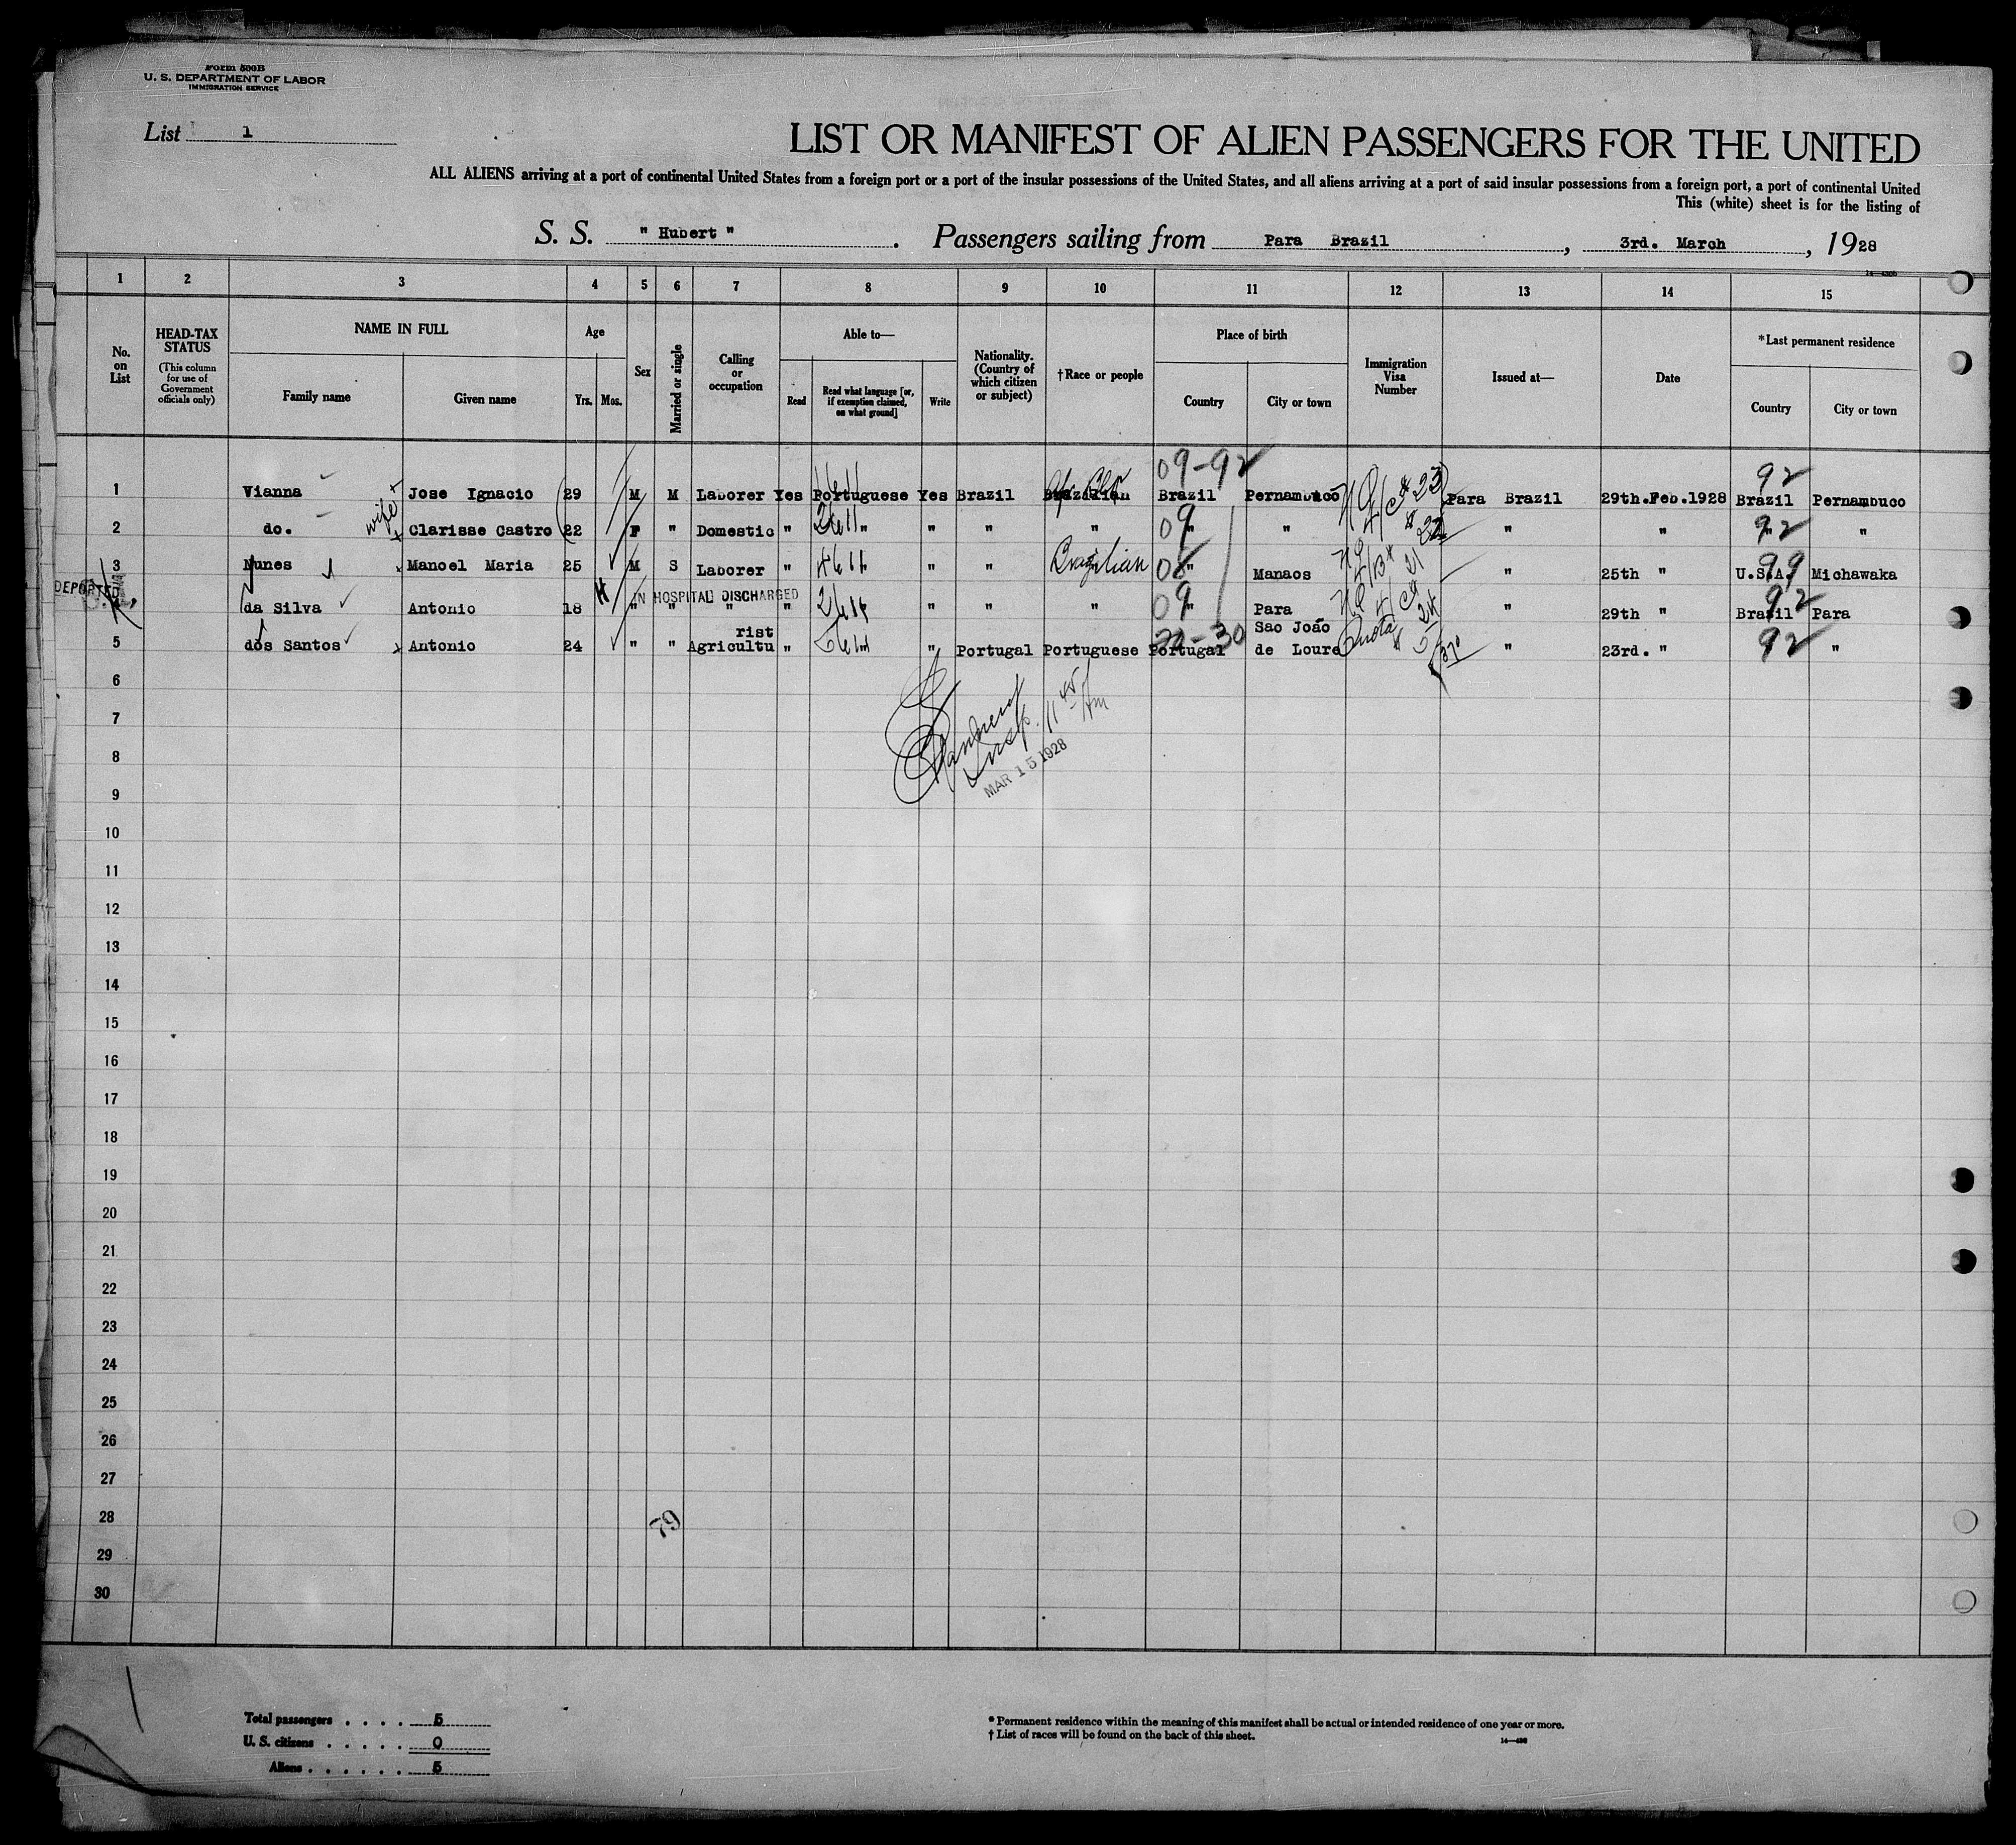 Form 500B
U. S. DEPARTMENT OF LABOR
IMMIGRATION SERVICE
List 1
LIST OR MANIFEST OF ALIEN PASSENGERS FOR THE UNITED
ALL ALIENS arriving at a port of continental United States from a foreign port or a port of the insular possessions of the United States, and all aliens arriving at a port of said insular possessions from a foreign port, a port of continental United
This (white) sheet is for the listing of
S. S. " Hubert " . Passengers sailing from Para Brazil , 3rd. March , 1928
1 2 3 4 5 6 7 8 9 10 11 12 13 14 15
No. on List
HEAD-TAX STATUS
(This column for use of Government officials only)
NAME IN FULL
Family name
Given name
Age
Yrs. Mos.
Sex
Married or single
Calling or occupation
Able to—
Read
Read what language [or, if exemption claimed, on what ground]
Write
Nationality. (Country of which citizen or subject)
†Race or people
Place of birth
Country
City or town
Immigration Visa Number
Issued at—
Date
*Last permanent residence
Country
City or town
09-92 92
1 Vianna Jose Ignacio 29 M M Laborer Yes Portuguese Yes Brazil Brazilian Brazil Pernambuco Para Brazil 29th.Feb.1928 Brazil Pernambuco
wife
2 do. Clarisse Castro 22 F " Domestic " " " " " 09 " " " 92 "
3 Nunes Manoel Maria 25 M S Laborer " " " Brazilian " Manaos " 25th " U.S.A. 99 Michawaka
DEPORTED
IN HOSPITAL DISCHARGED
da Silva Antonio 18 " " " " " " " 09 " Para " 29th " Brazil 92 Para
5 dos Santos Antonio 24 " " Agricultu rist " " Portugal Portuguese Portugal 30 Sao João de Loure Quota " 23rd. " 92 "
6
7
11 45 Am
MAR 15 1928
8
9
10
11
12
13
14
15
16
17
18
19
20
21
22
23
24
25
26
27
28
79
29
30
Total passengers . . . . 5
U. S. citizens . . . . . 0
Aliens . . . . . . 5
* Permanent residence within the meaning of this manifest shall be actual or intended residence of one year or more.
† List of races will be found on the back of this sheet.